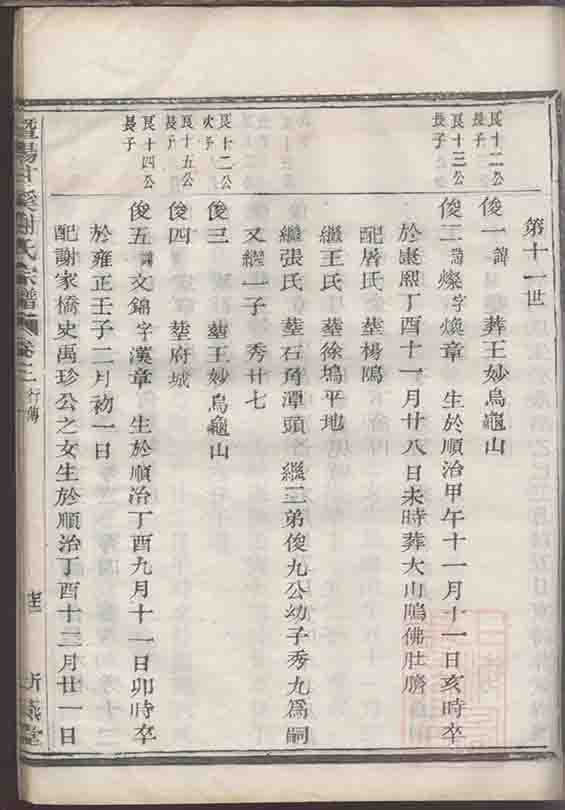 第十一世
艮十二公長子
俊一諱 葬王妙烏龜山
艮十三公長子
俊二諱燦字煥章 生於順治甲午十一月十一日亥時卒
於康熙丁酉十一月廿八日未時葬大山隝佛肚臍
配屠氏葬楊隝
繼王氏葬徐塢平地
繼張氏葬石角潭頭 繼三弟俊九公幼子秀九爲嗣
又繼一子 秀廿七
艮十二公次子
俊三 葬王妙烏龜山
艮十五公長子
俊四 葬府城
艮十四公長子
俊五諱文錦字漢章 生於順治丁酉九月十一日卯時卒
於雍正壬子二月初一日
配謝家橋史禹珍公之女生於順治丁酉十二月廿一日
暨陽甘溪謝氏宗譜 卷之二 行傳